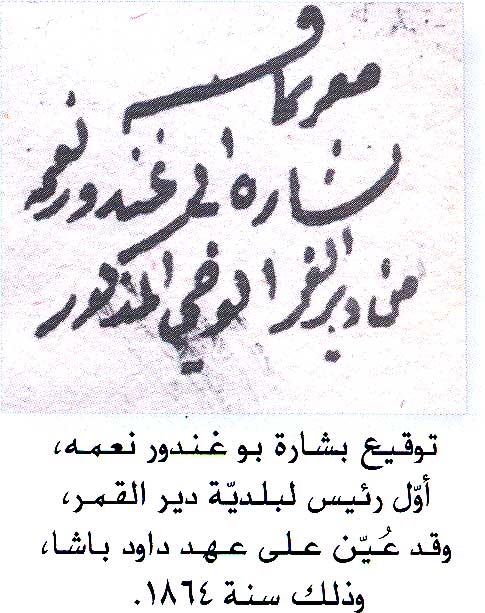 مقر بما فيه
بشاره ابي غندور نعمه
من دير القمر المذكور
توقيع بشارة بو غندور نعمه،
أوّل رئيس لبلديّة دير القمر،
وقد عُيّن على عهد داود باشا،
وذلك سنة ١٨٦٤.